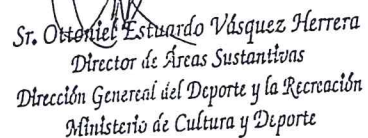 Sr. Ottoniel Estuardo Vásquez Herrera
Director de Áreas Sustantivas
Dirección Genereal del Deporte y la Recreación
Ministerio de Cultura y Deporte